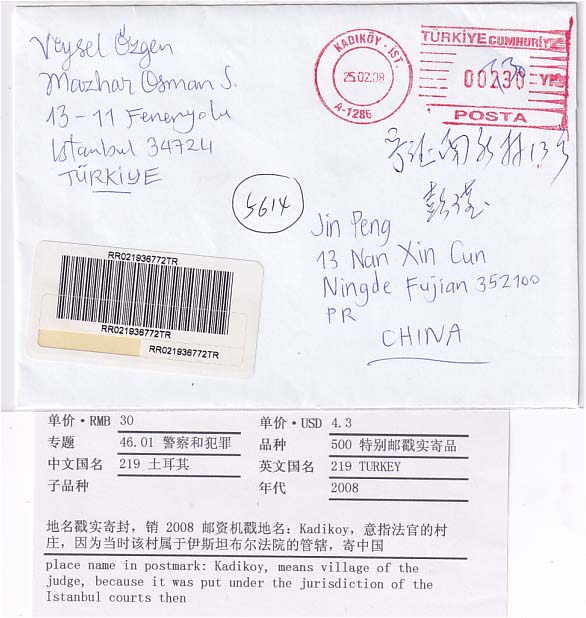 Veysel Özgen
Mazhar Osman S.
13-11 Feneryolu
Istanbul 34724
TÜRKİYE
KADIKÖY - IST.
25.02.08
A-1286
TÜRKİYE CUMHURİYE
00230 YKR
POSTA
5614
Jin Peng
13 Nan Xin Cun
Ningde Fujian 352100
PR
CHINA
RR021936772TR
RR021936772TR
RR021936772TR
单价·RMB 30
单价·USD 4.3
专题 46.01 警察和犯罪
品种 500 特别邮戳实寄品
中文国名 219 土耳其
英文国名 219 TURKEY
子品种
年代 2008
地名戳实寄封，销 2008 邮资机戳地名：Kadikoy，意指法官的村
庄，因为当时该村属于伊斯坦布尔法院的管辖，寄中国
place name in postmark: Kadikoy, means village of the
judge, because it was put under the jurisdiction of the
Istanbul courts then